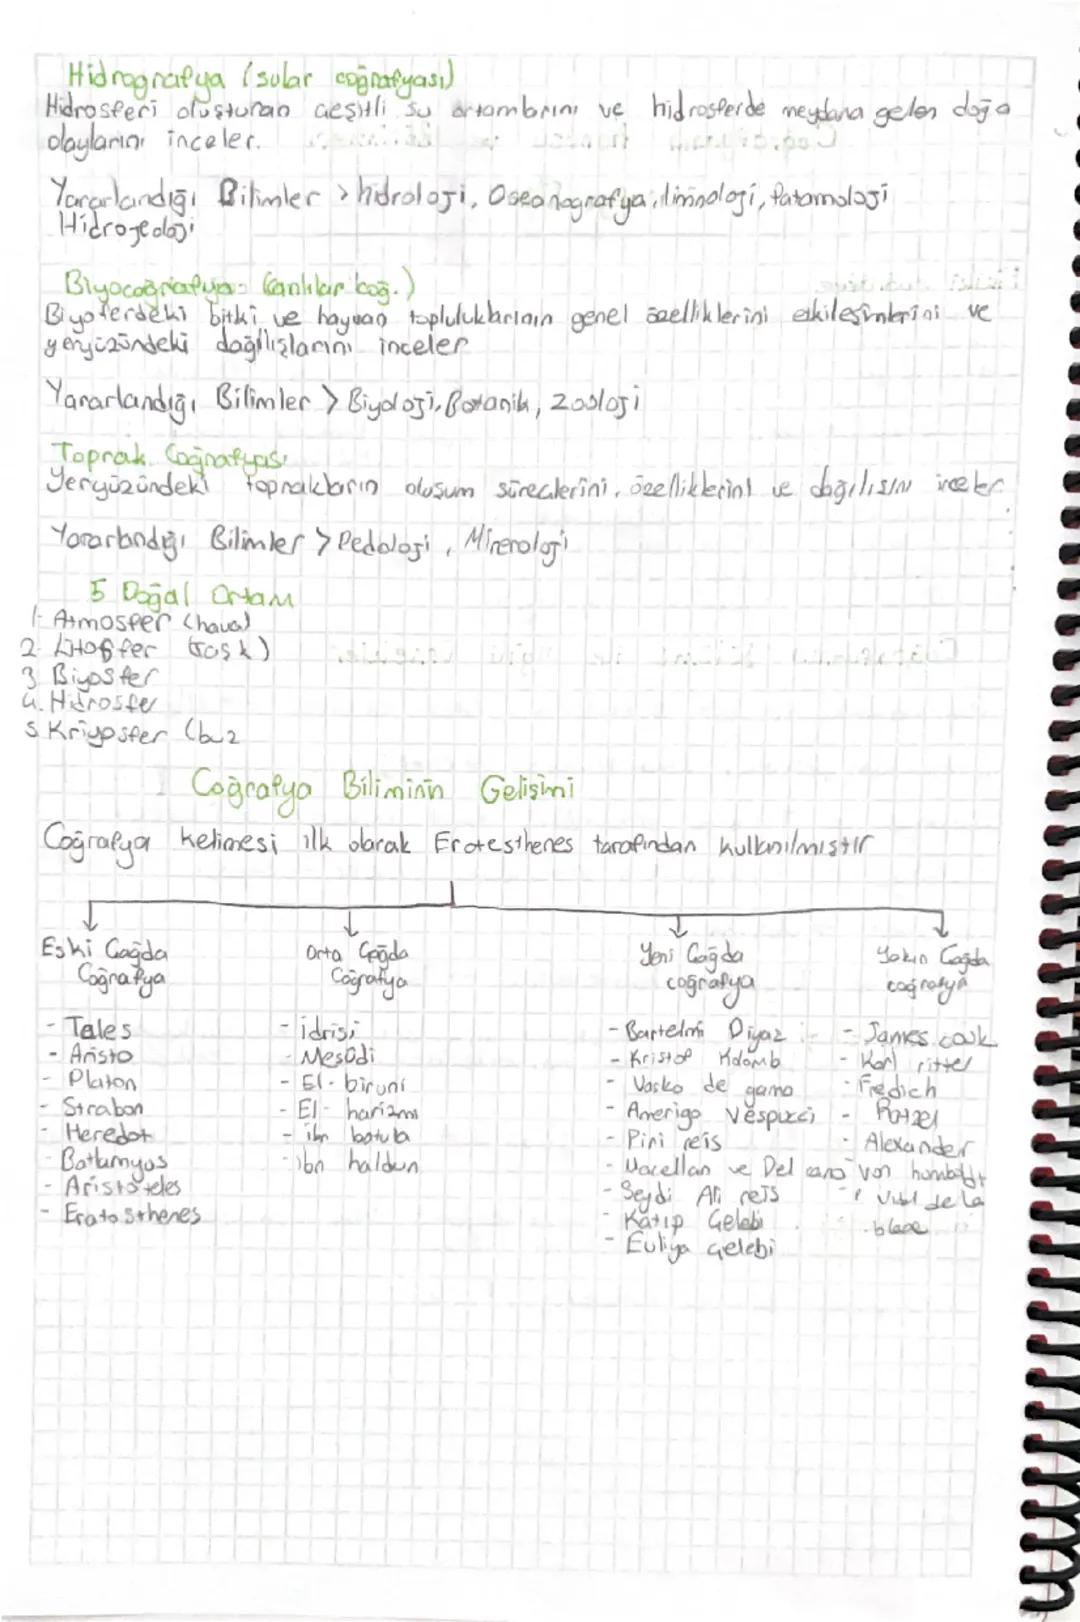 Hidrografya (sular coğrafyası)
Hidrosferi oluşturan çeşitli su ortamlarını ve hidrosferde meydana gelen doğa
olaylarını inceler.
Yararlandığı Bilimler > hidroloji, Oseanografya, limnoloji, Patamoloji
Hidrojeoloji
Biyocoğrafya: (canlılar coğ.)
Biyoferdeki bitki ve hayvan topluluklarının genel özelliklerini etkileşimlerini ve
yeryüzündeki dağılışlarını inceler
Yararlandığı Bilimler > Biyoloji, Botanik, Zooloji
Toprak Coğrafyası
Yeryüzündeki toprakların oluşum süreçlerini, özelliklerini ve dağılışını inceler
Yararlandığı Bilimler > Pedoloji, Mineroloji
5 Doğal Ortam
1- Atmosfer (hava)
2- Litosfer (taşk)
3 Biyosfer
4. Hidrosfer
5 Kriyosfer (buz
Coğrafya Biliminin Gelişimi
Coğrafya kelimesi ilk olarak Erotesthenes tarafından kullanılmıştır
Eski Çağda
Coğrafya
- Tales
- Aristo
- Platon
- Strabon
- Heredot
- Batlamyos
- Aristoteles
- Eratosthenes
Orta Çağda
Coğrafya
- idrisi
- Mesudi
- El-biruni
- El-harizmi
- ibn batuta
- ibn haldun
Yeni Çağda
coğrafya
- Bartelmi Diyaz
- Kristof Kolomb
- Vasko de gama
- Amerigo Vespucci
- Piri reis
- Macellan ve Del cano
- Seydi Ali reis
- Katip Çelebi
- Evliya çelebi
Yakın Çağda
coğrafya
- James cook
- Karl ritter
- Fredich
- Ratzel
- Alexander
von humboldt
- Vidal de la
blace